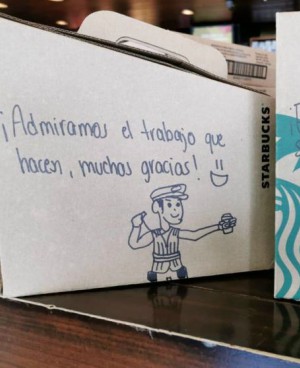 ¡Admiramos el trabajo que
hacen, muchas gracias!
STARBUCKS